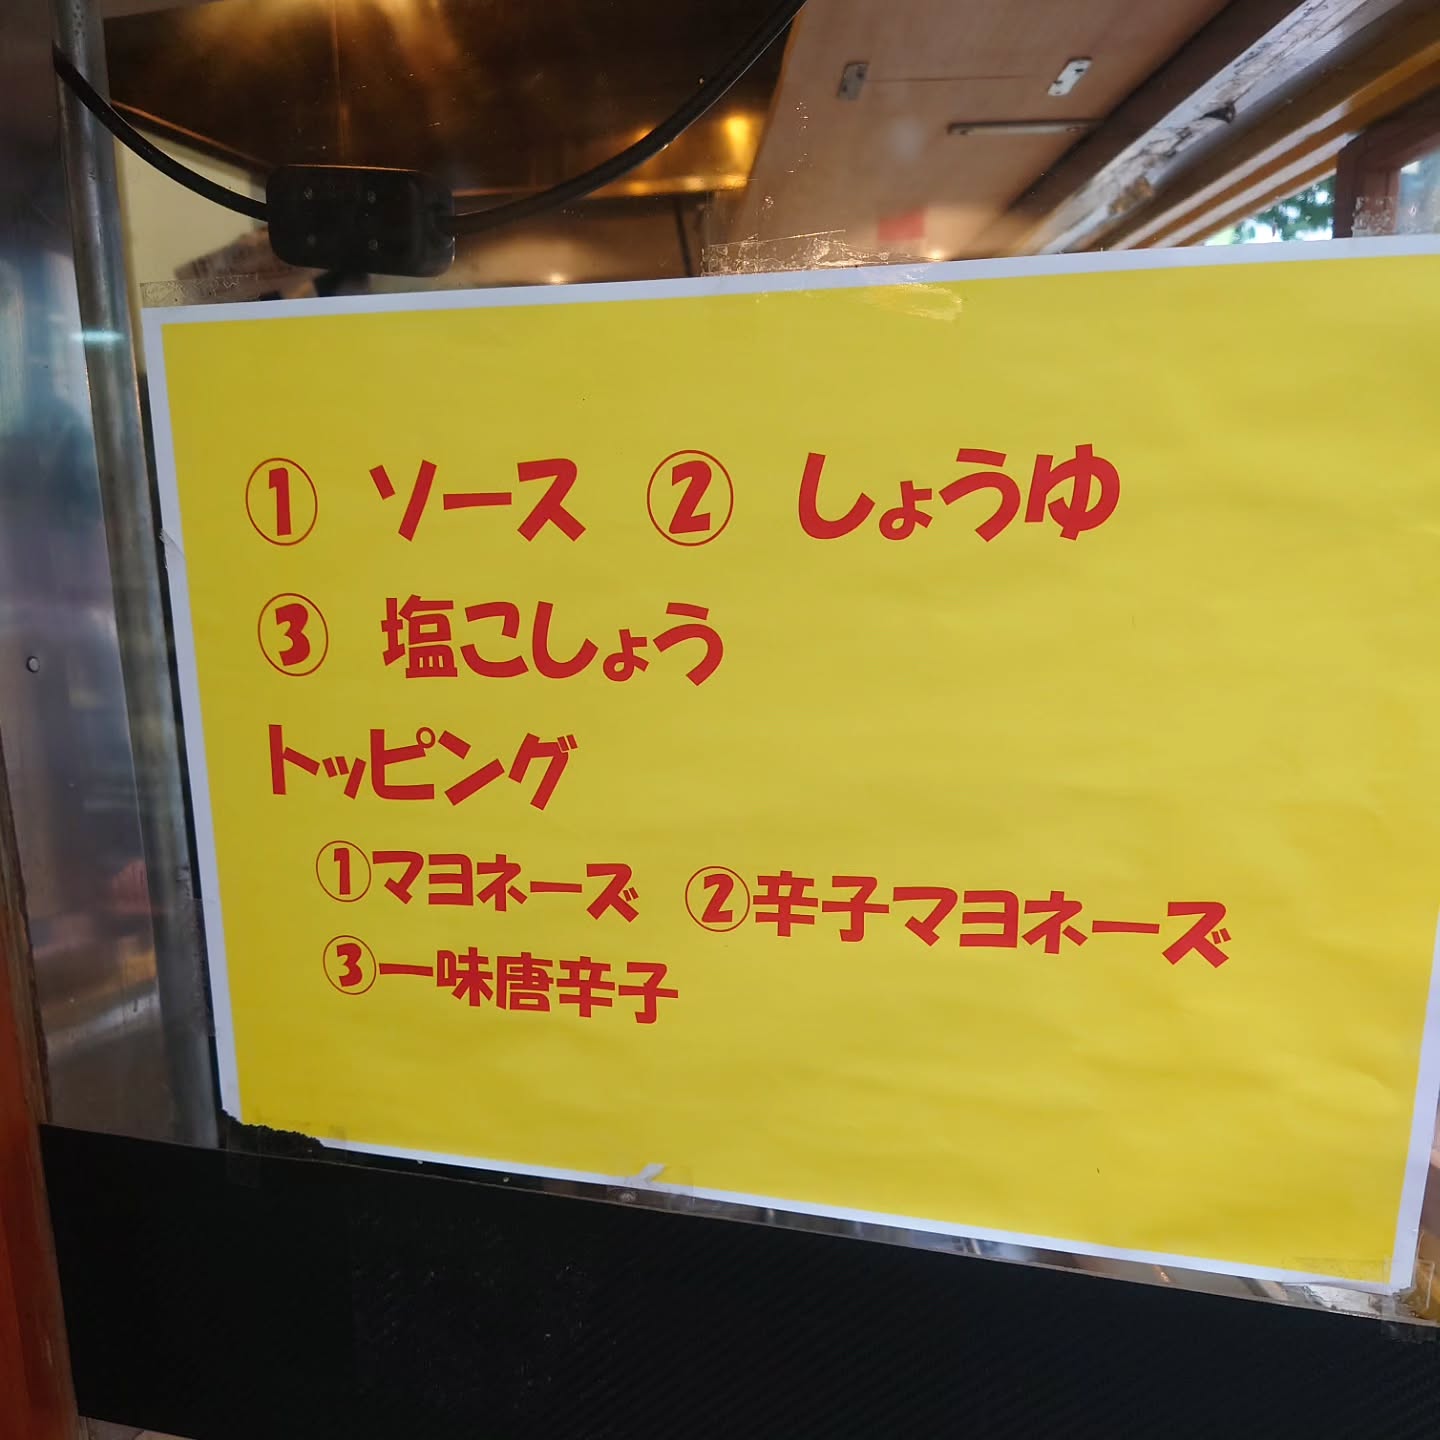 ① ソース ② しょうゆ
③ 塩こしょう
トッピング
①マヨネーズ ②辛子マヨネーズ
③一味唐辛子